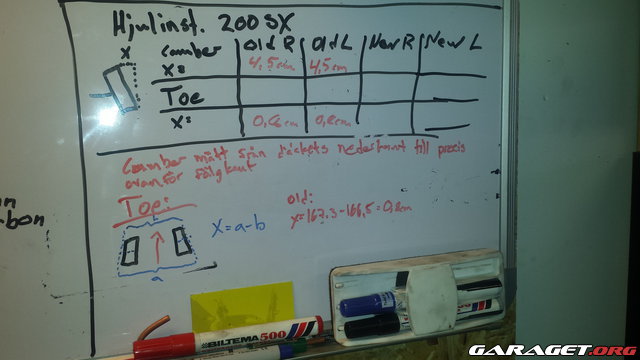 Hjulinst. 200SX
x
Camber
x=
Old R
Old L
New R
New L
4,5
4,5cm
Toe
x=
0,8cm
Camber mätt från däckets nederkant till precis
ovanför fälgkant
Toe:
a
x=a-b
old:
x=167.3-166,5=0,8cm
bon
BILTEMA 500
GARAGET.ORG